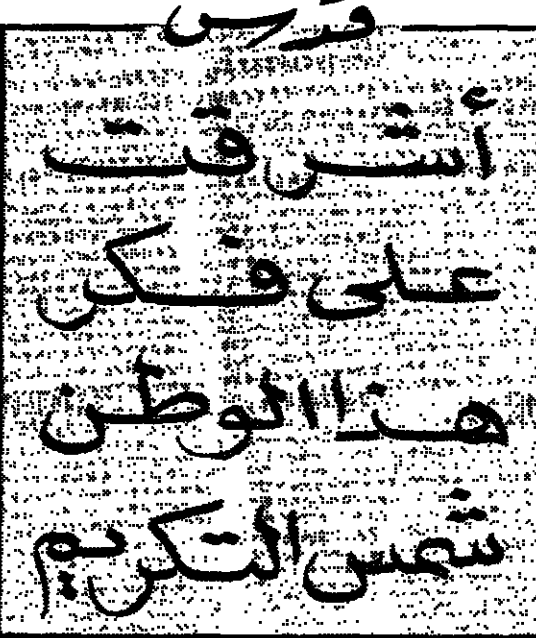 أشرقت
على فكر
هذا الوطن
شمس التكريم